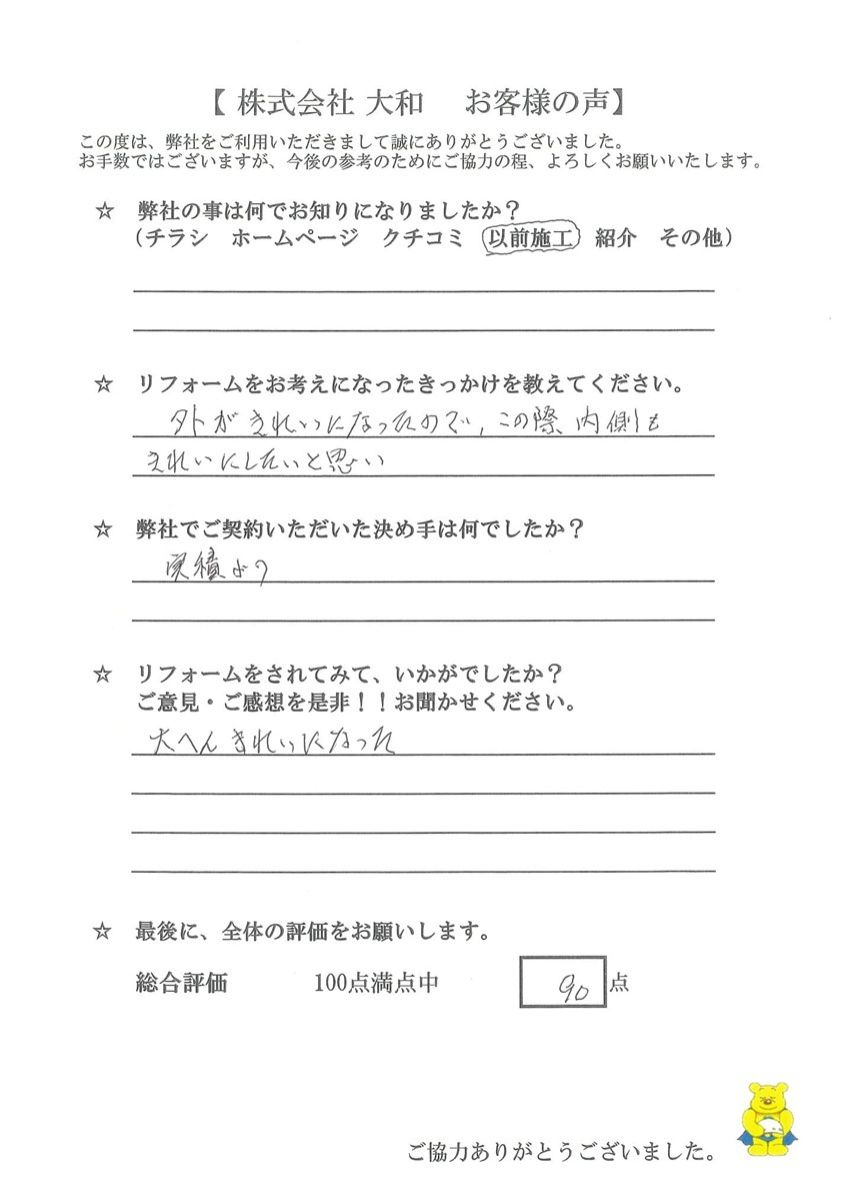 【 株式会社 大和　お客様の声】
この度は、弊社をご利用いただきまして誠にありがとうございました。
お手数ではございますが、今後の参考のためにご協力の程、よろしくお願いいたします。
☆ 弊社の事は何でお知りになりましたか？
（チラシ ホームページ クチコミ 以前施工 紹介 その他）
☆ リフォームをお考えになったきっかけを教えてください。
外がきれいになったので、この際 内側も
きれいにしたいと思い
☆ 弊社でご契約いただいた決め手は何でしたか？
実績より
☆ リフォームをされてみて、いかがでしたか？
ご意見・ご感想を是非！！お聞かせください。
大へんきれいになった
☆ 最後に、全体の評価をお願いします。
総合評価 100点満点中 90 点
ご協力ありがとうございました。